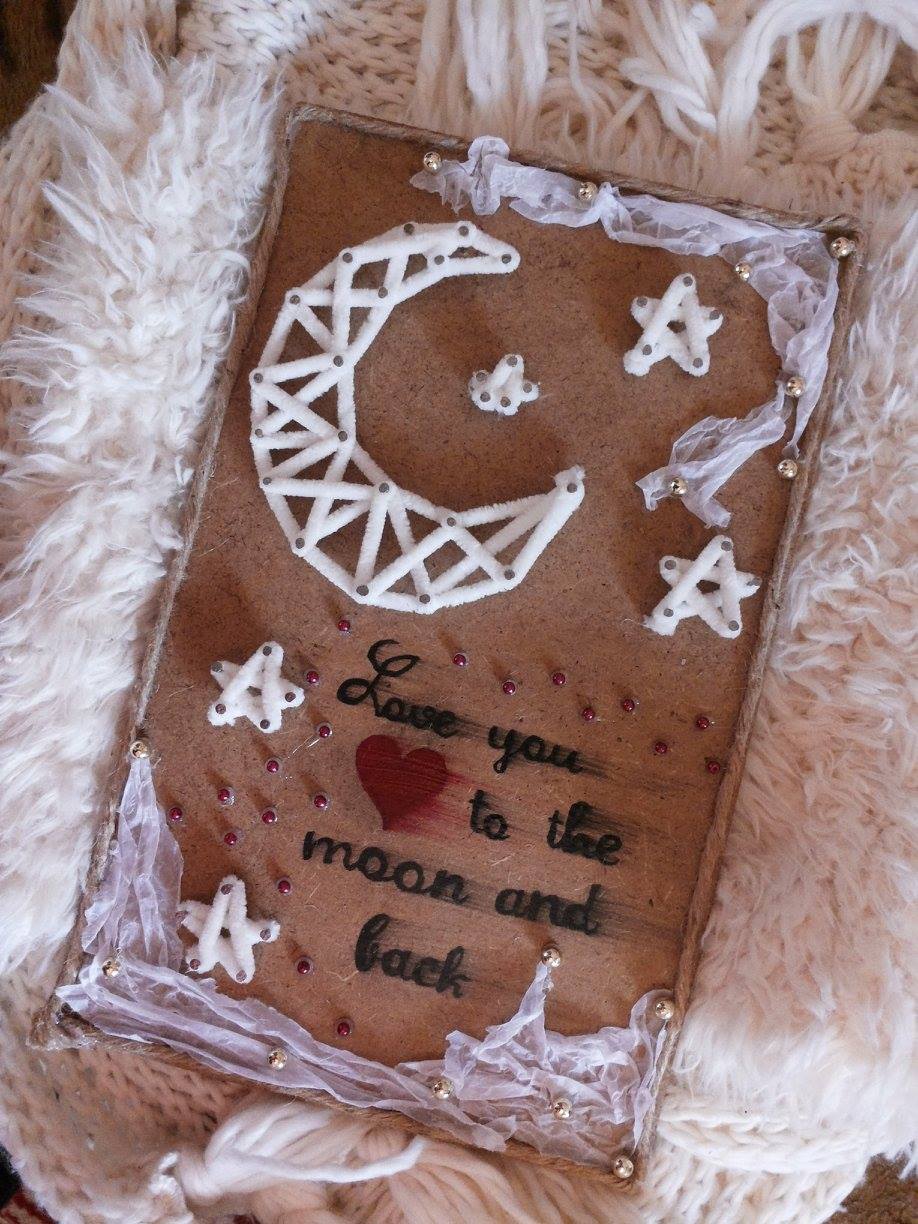 Love you
to the
moon and
back